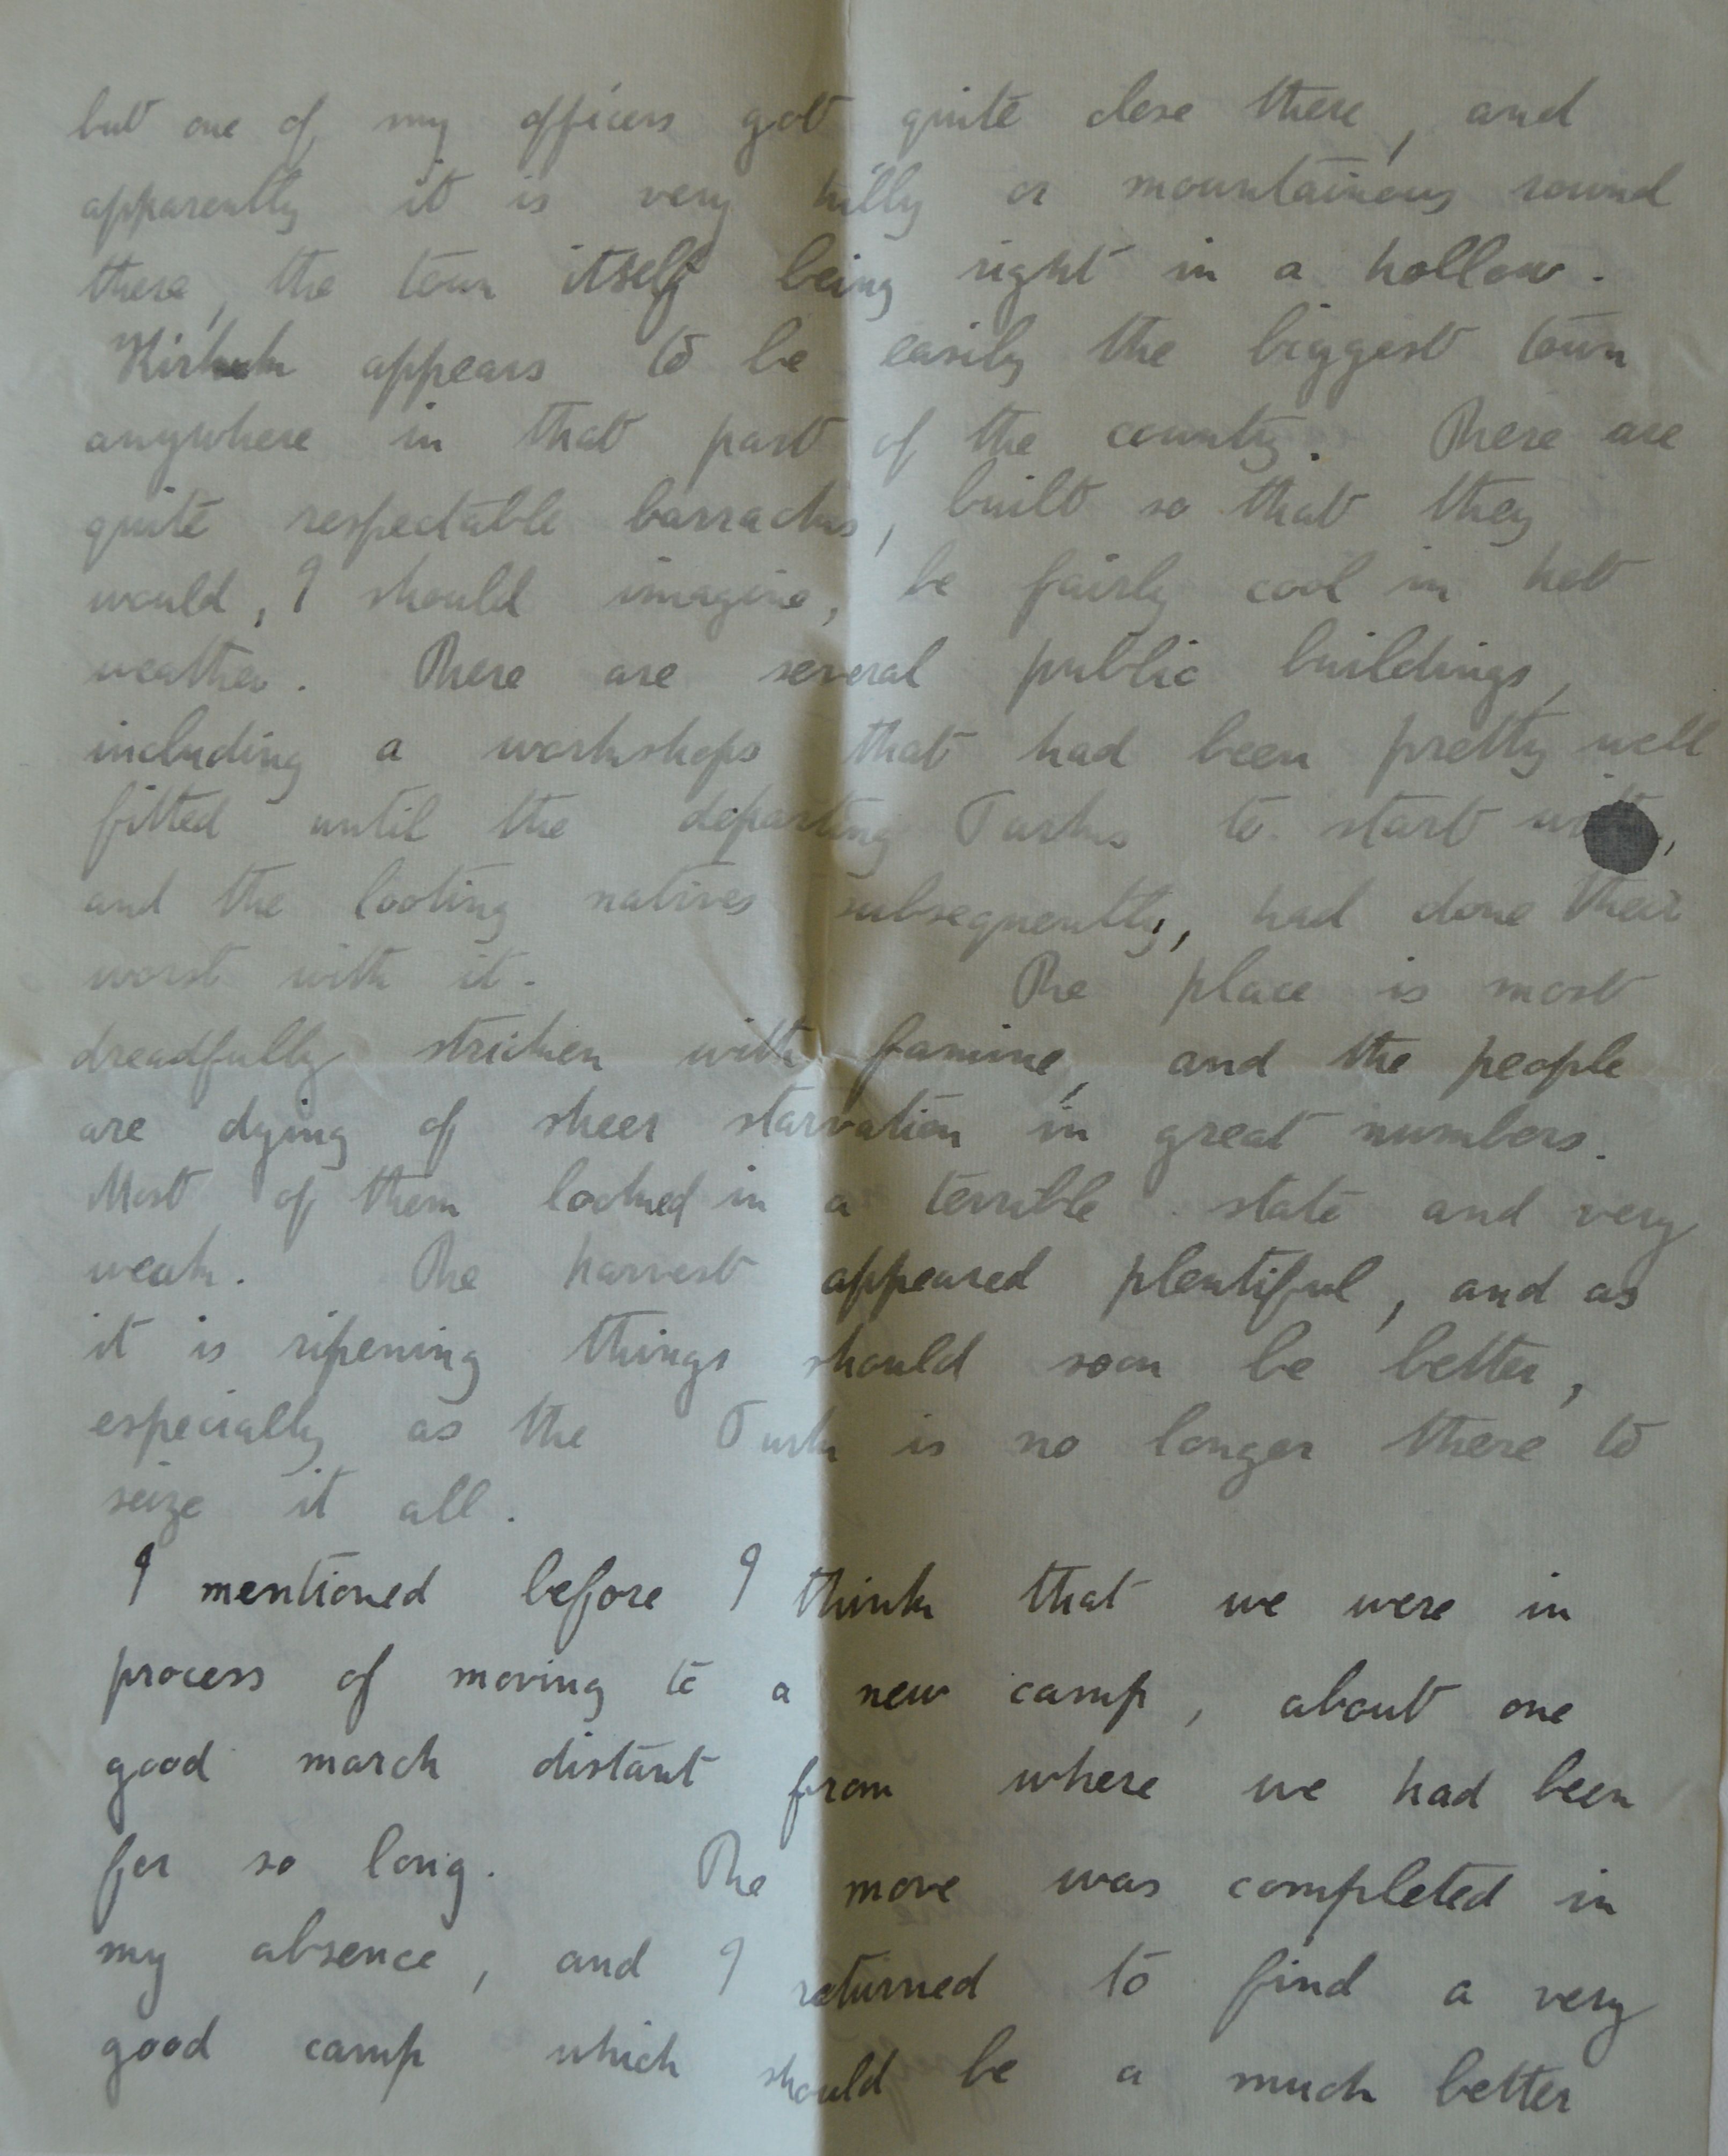 but one of my officers got quite close there, and
apparently it is very hilly or mountainous round
there, the town itself being right in a hollow.
Kirkuk appears to be easily the biggest town
anywhere in that part of the country. There are
quite respectable barracks, built so that they
would, I should imagine, be fairly cool in hot
weather. There are several public buildings,
including a workshops that had been pretty well
fitted until the departing Turks to start with,
and the looting natives subsequently, had done their
worst with it. The place is most
dreadfully stricken with famine, and the people
are dying of sheer starvation in great numbers.
Most of them looked in a terrible state and very
weak. The harvest appeared plentiful, and as
it is ripening things should soon be better,
especially as the Turk is no longer there to
seize it all.
I mentioned before I think that we were in
process of moving to a new camp, about one
good march distant from where we had been
for so long. The move was completed in
my absence, and I returned to find a very
good camp which should be a much better